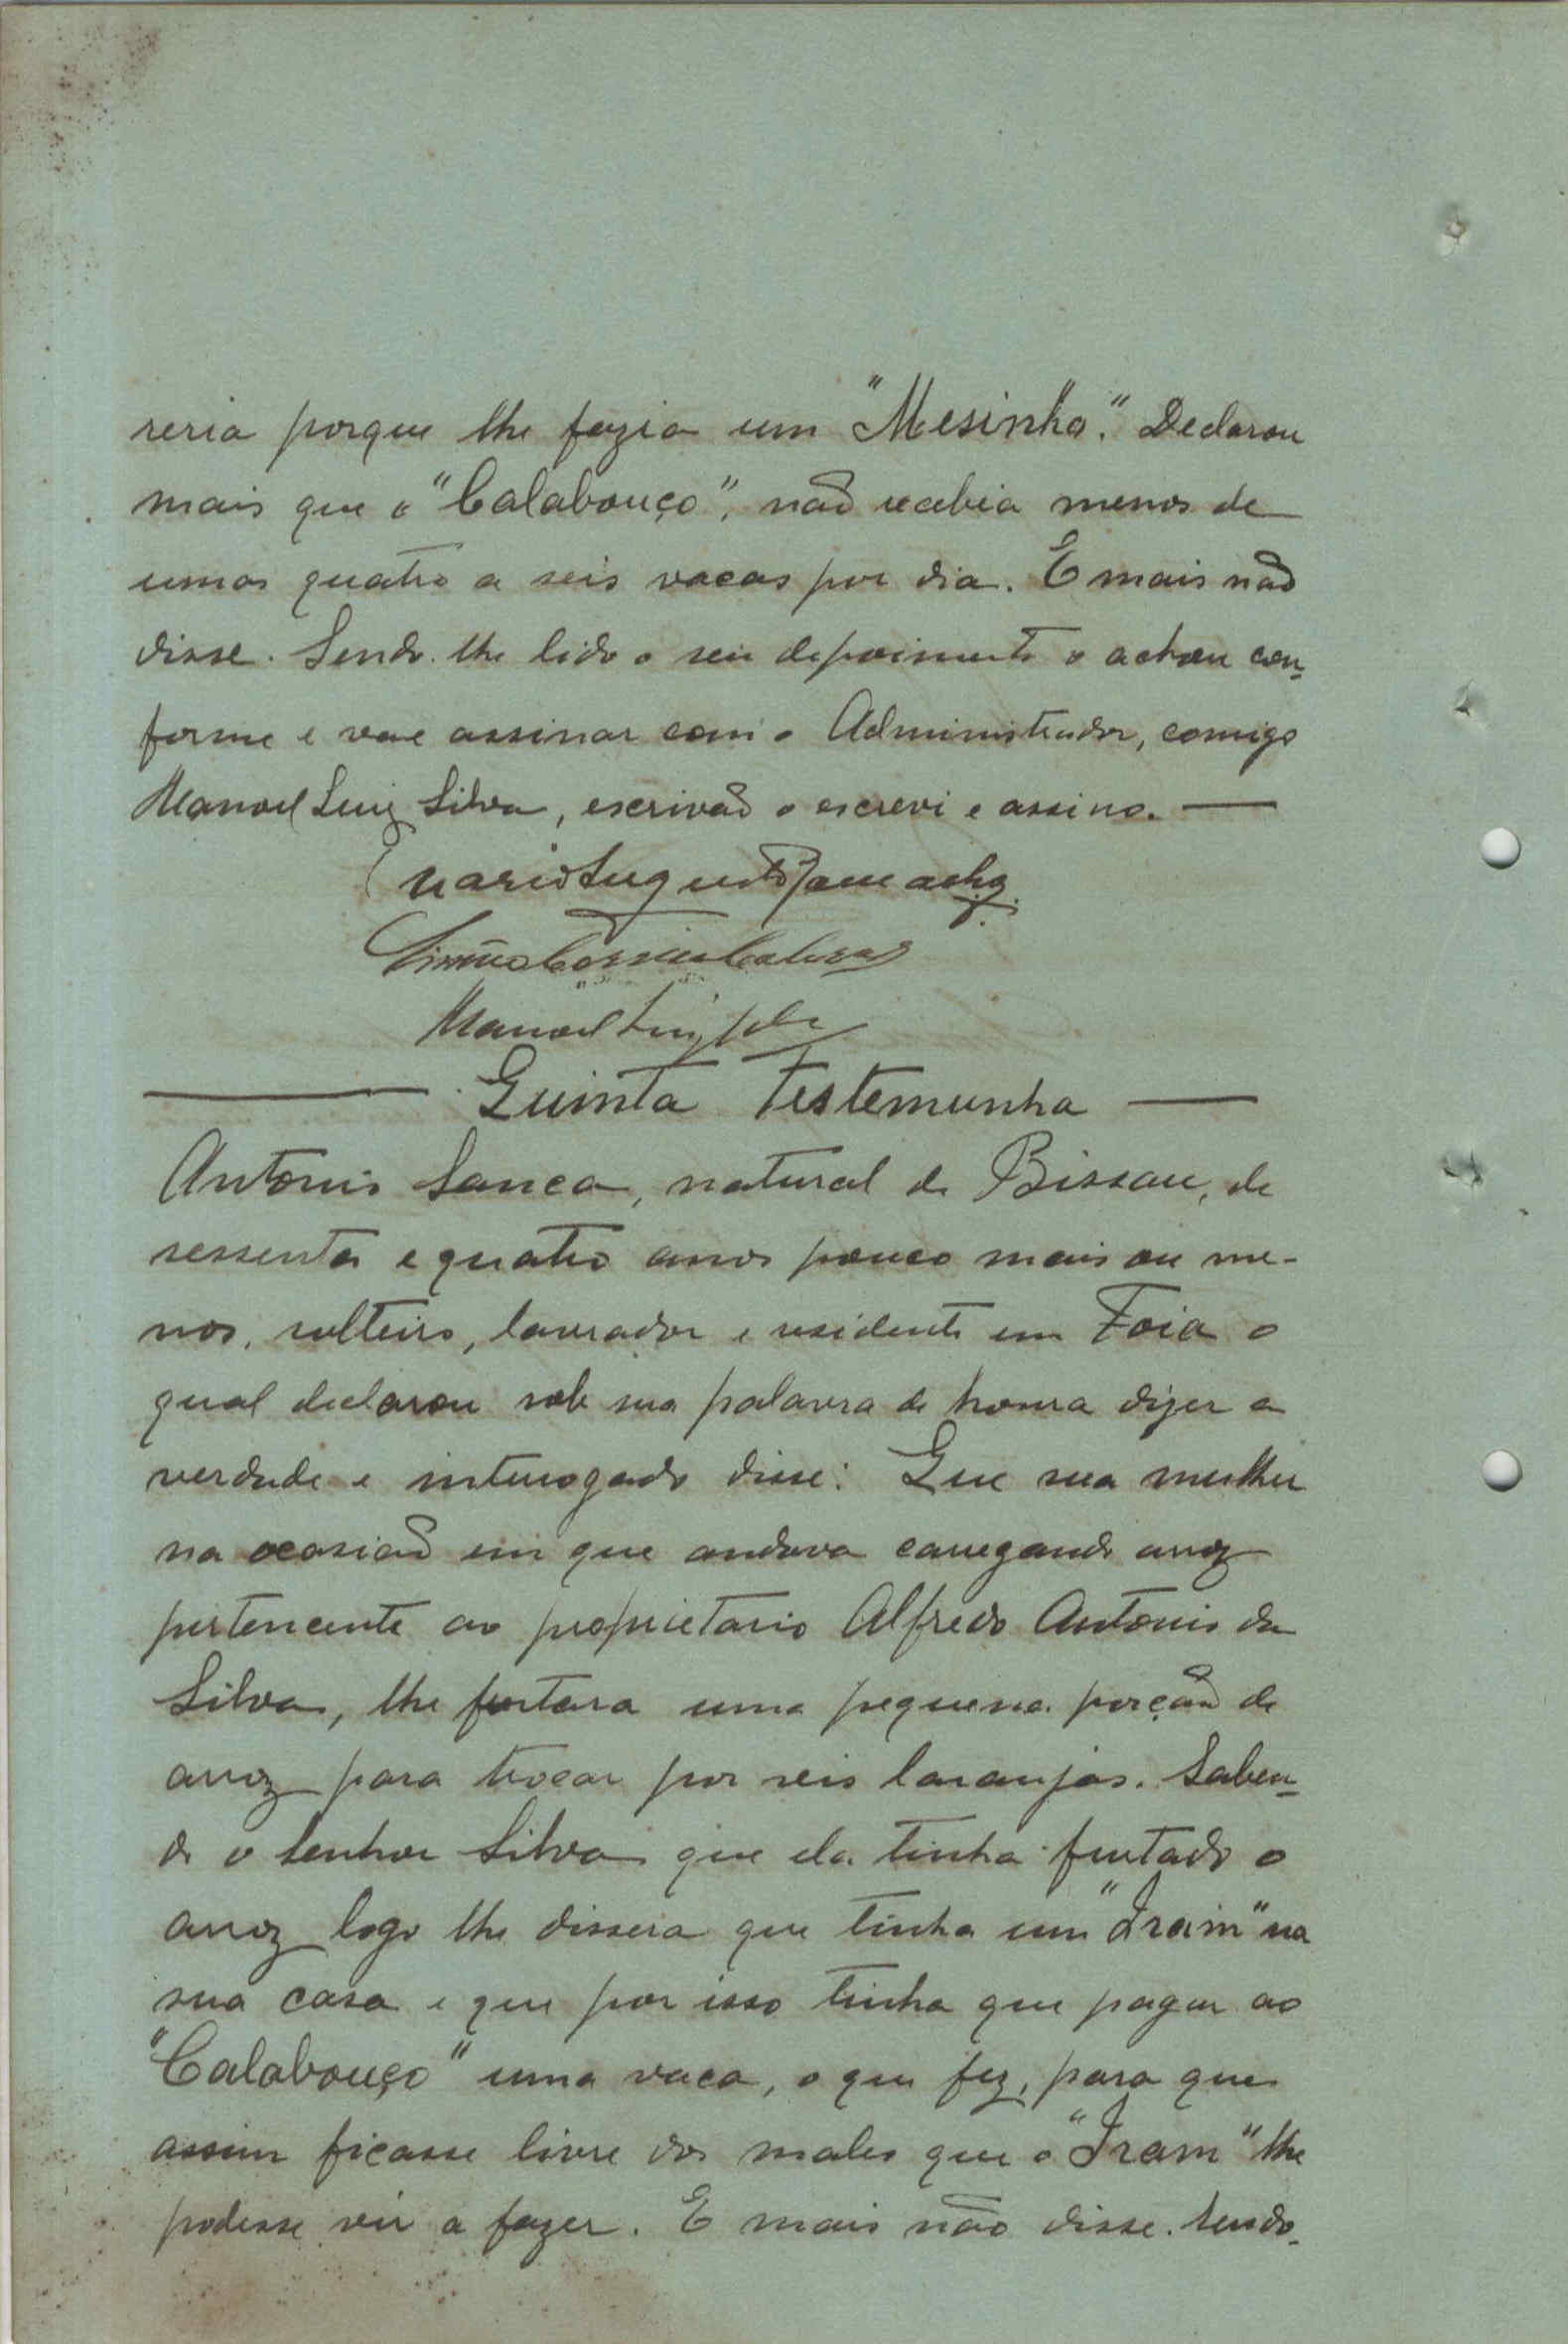 reria porque lhe fazia um "Mesinho". Declarou
mais que o "Calabouço", não recebia menos de
umas quatro a seis vacas por dia. E mais não
disse. Sendo-lhe lido o seu depoimento o achou con-
forme e vae assinar com o Administrador, comigo
Manoel Luiz Silva, escrivão o escrevi e assino. —
Manoel Luiz Silva
— Quinta Testemunha —
Antonio Sanca, natural de Bissau, de
sessenta e quatro anos pouco mais ou me-
nos, solteiro, lavrador e residente em Foia o
qual declarou sob sua palavra de honra dizer a
verdade e interrogado disse: Que sua mulher
na ocasião em que andava carregando arroz
pertencente ao proprietario Alfredo Antonio da
Silva, lhe furtara uma pequena porção de
arroz para trocar por seis laranjas. Saben-
do o Senhor Silva que ela tinha furtado o
arroz logo lhe dissera que tinha um "Iram" na
sua casa e que por isso tinha que pagar ao
"Calabouço" uma vaca, o que fez, para que
assim ficasse livre dos males que o "Iram" lhe
podesse vir a fazer. E mais não disse. Sendo-